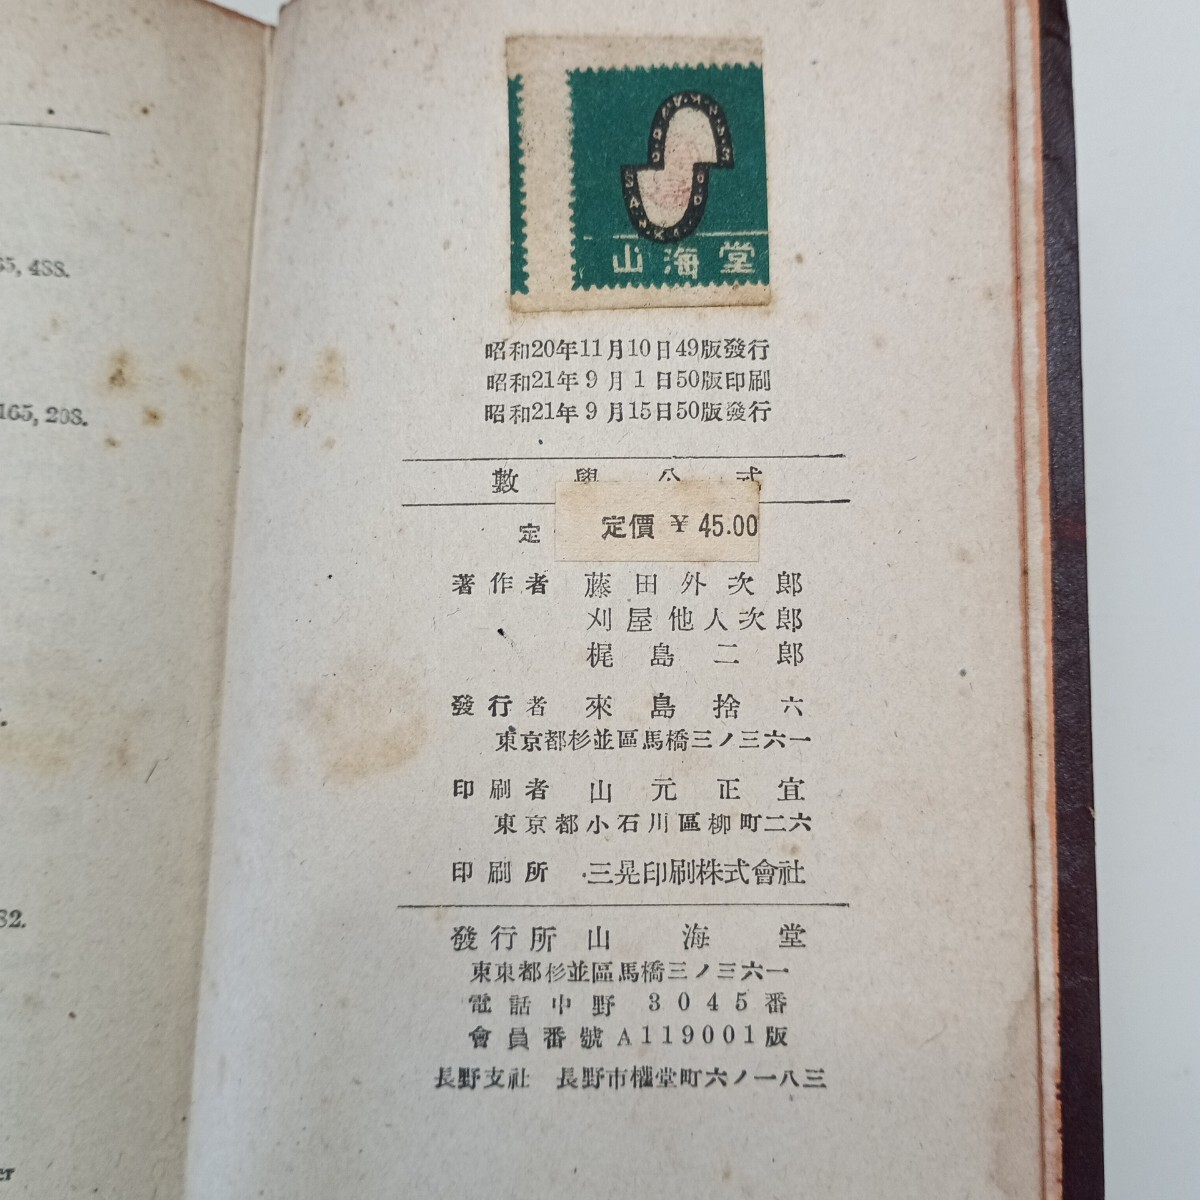 65, 488.
165, 208.
82.
er
山海堂
昭和20年11月10日49版發行
昭和21年9月1日50版印刷
昭和21年9月15日50版發行
數學公式
定
定價 ¥ 45.00
著作者 藤田外次郎
刈屋他人次郎
梶島二郎
發行者 來島捨六
東京都杉並區馬橋三ノ三六一
印刷者 山元正宜
東京都小石川區柳町二六
印刷所 三晃印刷株式會社
發行所 山海堂
東東都杉並區馬橋三ノ三六一
電話中野 3045番
會員番號A119001版
長野支社 長野市權堂町六ノ一八三